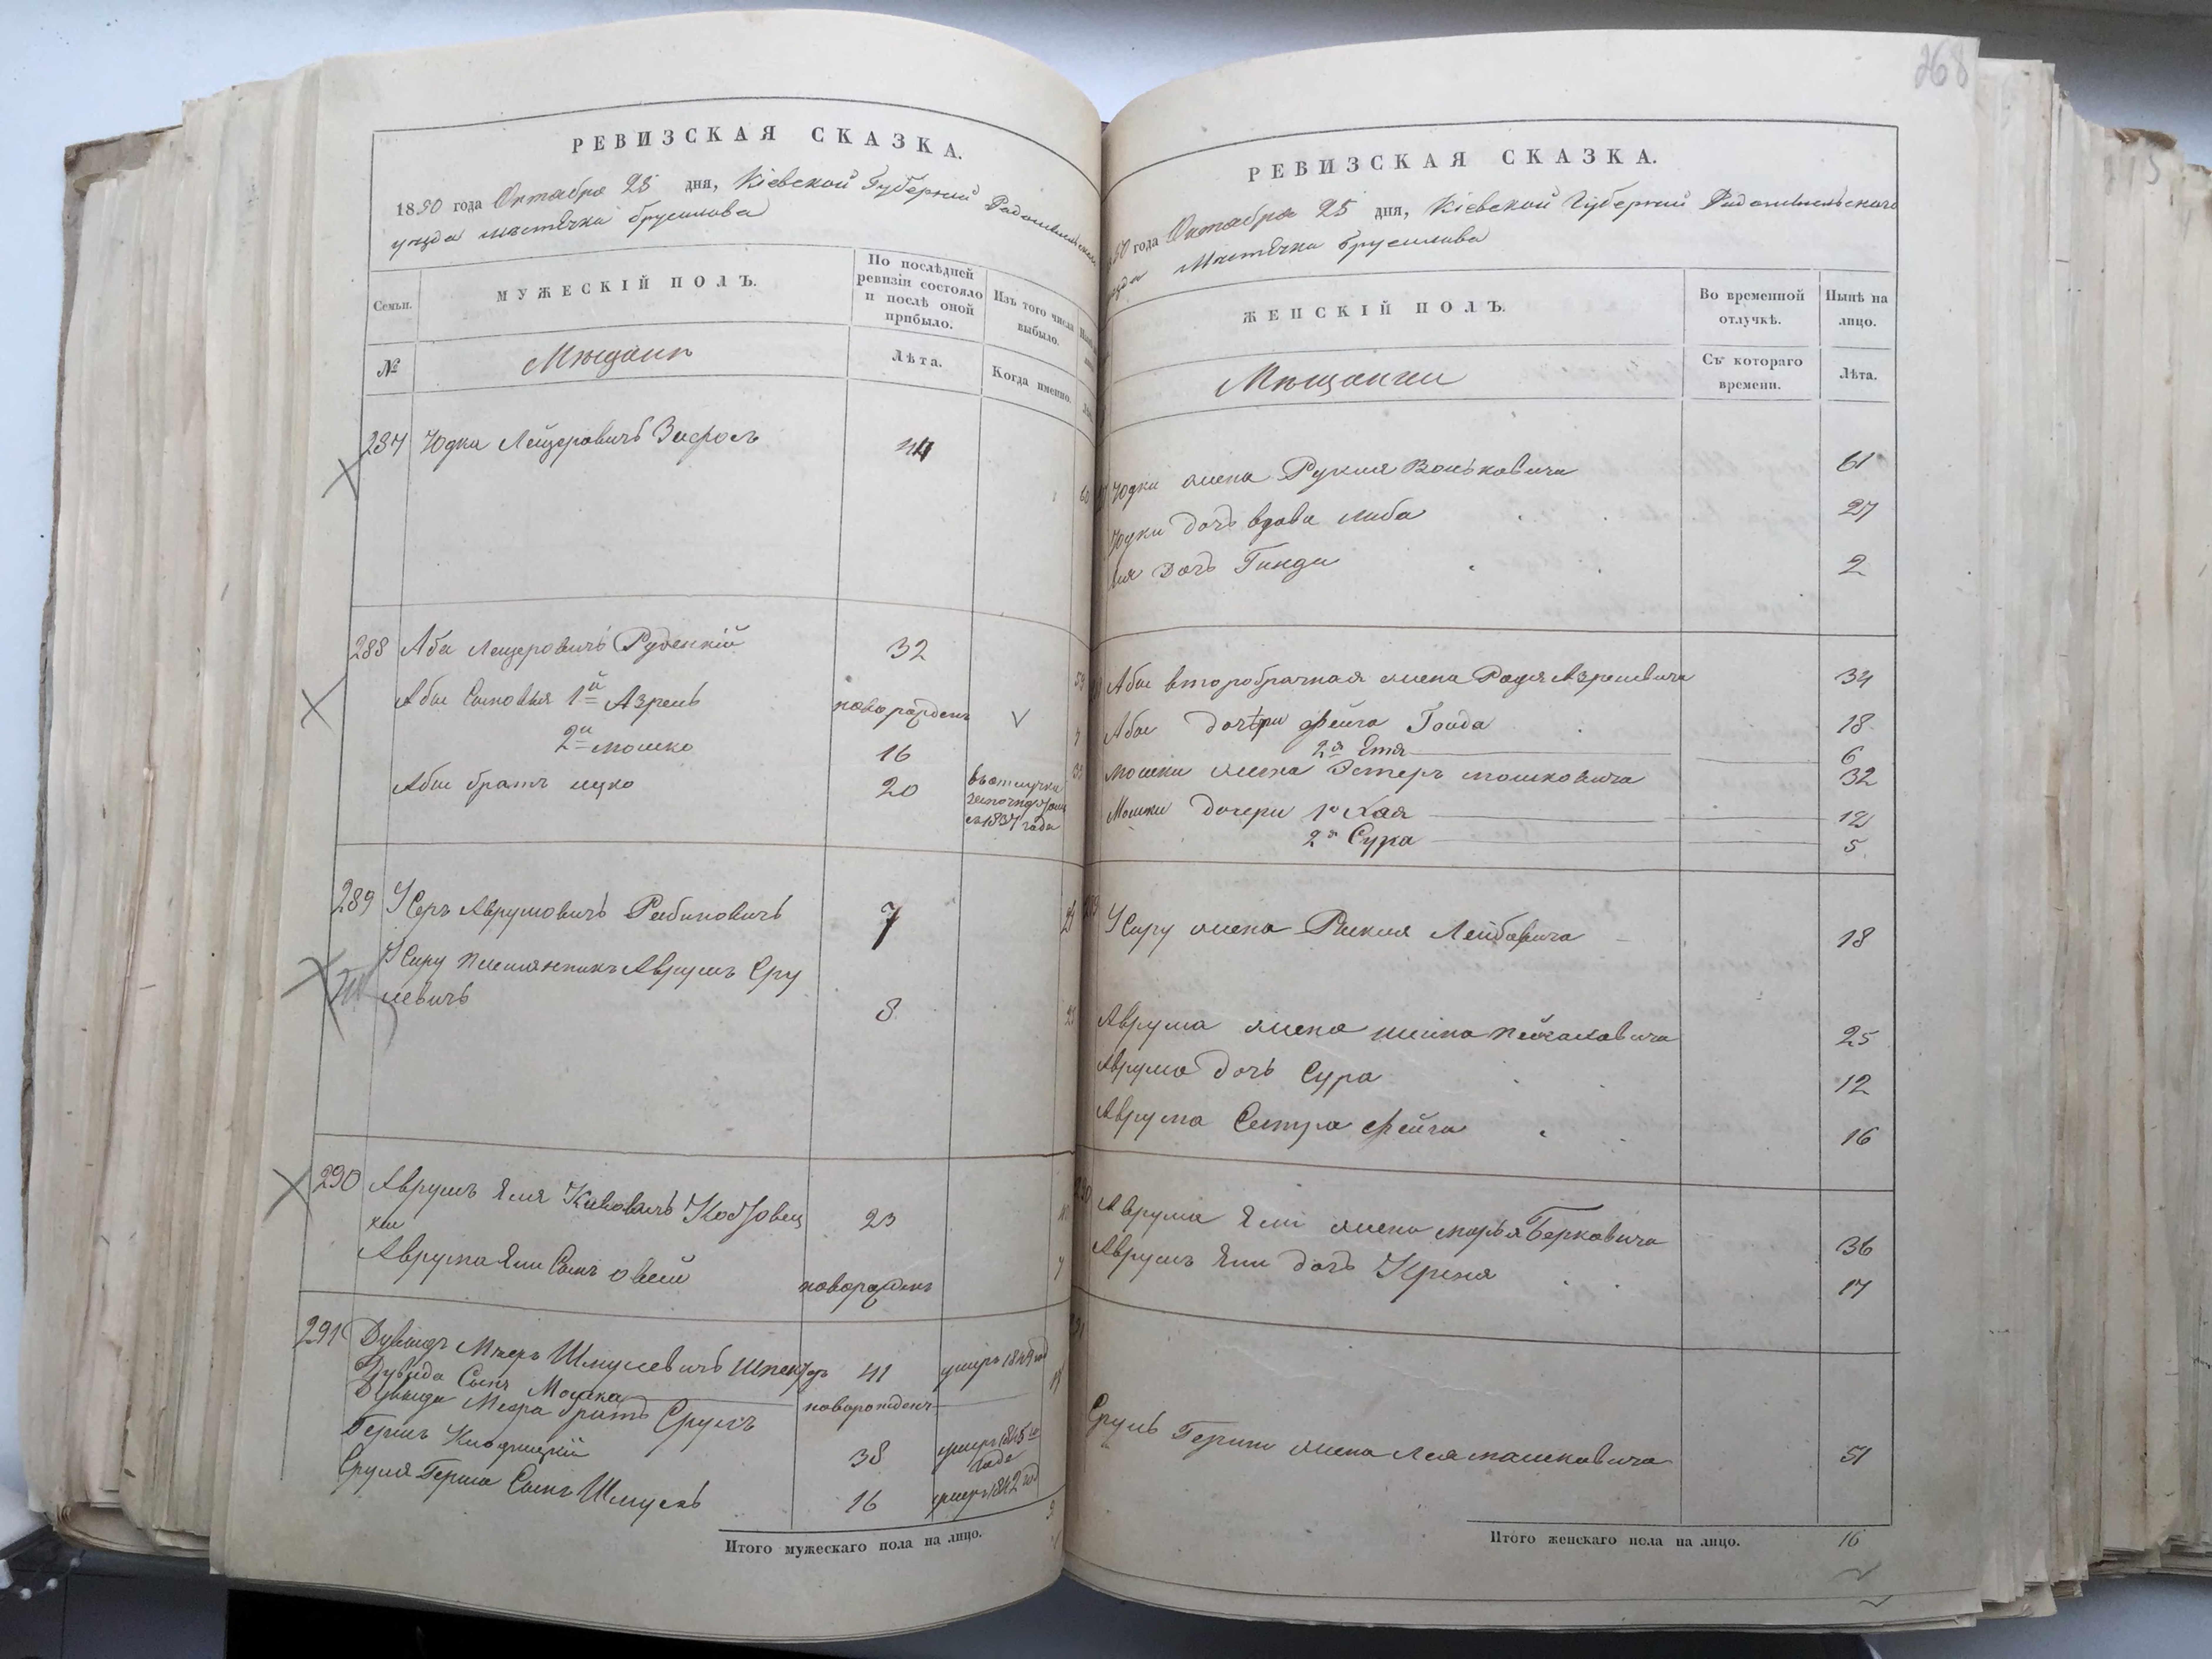 РЕВИЗСКАЯ СКАЗКА.
1850 года Октября 25 дня, Кіевской Губерніи Радомысльскаго
уезда местечка Брусилова
Семьи.
МУЖЕСКІЙ ПОЛЪ.
По послѣдней
ревизіи состояло
и послѣ оной
прибыло.
Изъ того числа
выбыло.
№
Мѣщане
Лѣта.
Когда именно.
287 Юдка Лейзеровичъ 44
288 Аба Лейзеровичъ Руденкій 32
Абы Сыновья 1й Азрель новорожденъ
2й мошко 16
Абы братъ ицко 20 въ отлучке
съ 1837 года
289 Усеръ Аврумовичъ Рабиновичъ 7
Усиру племянникъ Аврумъ Сру
левичъ 8
290 Аврумъ Еля Кивовичъ 23
Аврума Ели Сынъ овсей новорожденъ
291 Дувидъ Мееръ Шмулевичъ 41 умеръ 1849 год
Дувида Сынъ Мошка новорожденъ
Дувида Меера братъ Сруль
Гершъ 38 умеръ 1845 го
годе
Сруля Герша Сынъ Шмуль 16 умеръ 1842 год
Итого мужескаго пола на лицо.
268
РЕВИЗСКАЯ СКАЗКА.
1850 года Октября 25 дня, Кіевской Губерніи Радомысльскаго
уезда Местечка Брусилова
ЖЕНСКІЙ ПОЛЪ.
Во временной
отлучкѣ.
Нынѣ на
лицо.
Мѣщанки
Съ котораго
времени.
Лѣта.
Юдки жена Рухля Вольковича 61
Юдки дочь вдова либа 27
ея дочь Гинда 2
Абы второбрачная жена 34
Абы дочери фейга Голда 18
2я Етя 6
мошки жена Эстеръ мошковича 32
Мошки дочери 1я Хая 12
2я Сура 5
Усиру жена Рыкля Лейбовича 18
Аврума жена шейна 25
Аврума дочь Сура 12
Аврума Сестра фейга 16
Аврума Ели жена марья Берковича 36
Аврумъ Ели дочь Крейня 17
Сруль Герши жена Лея машковича 51
Итого женскаго пола на лицо. 16